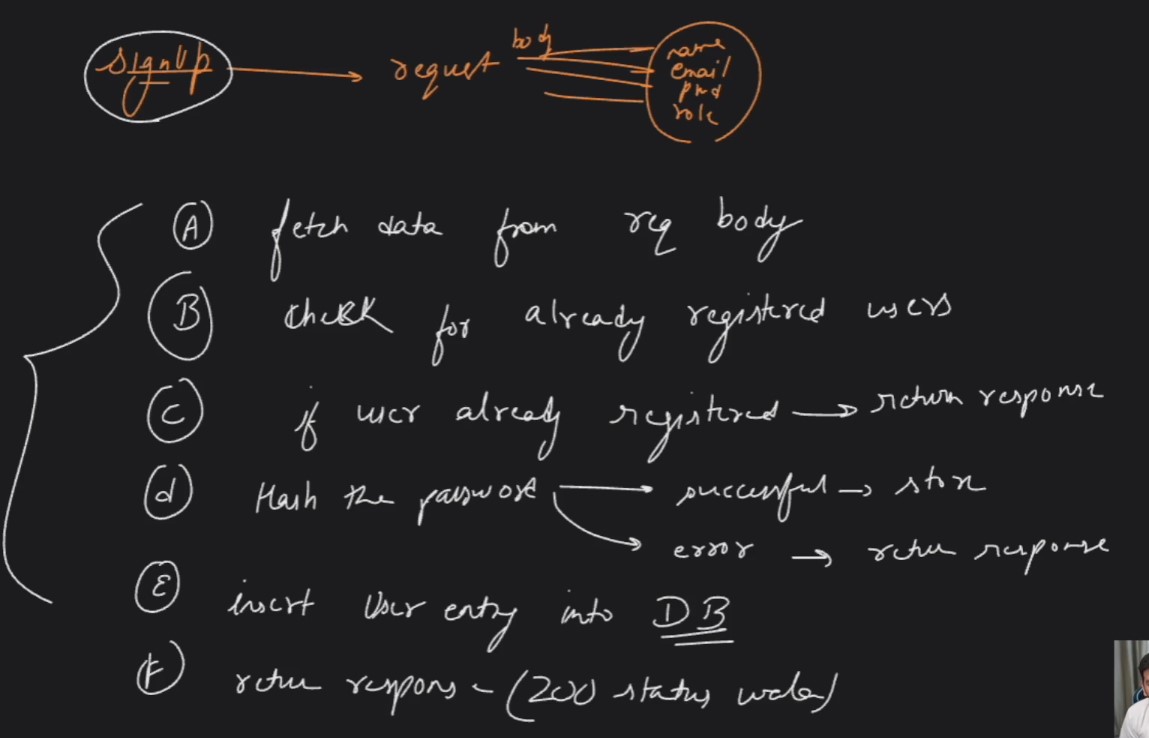 SignUp → request body name
email
pwd
role
A fetch data from req body
B check for already registered users
C if user already registered → return response
d Hash the password → successful → store
error → return response
E insert User entry into DB
F return response - (200 status